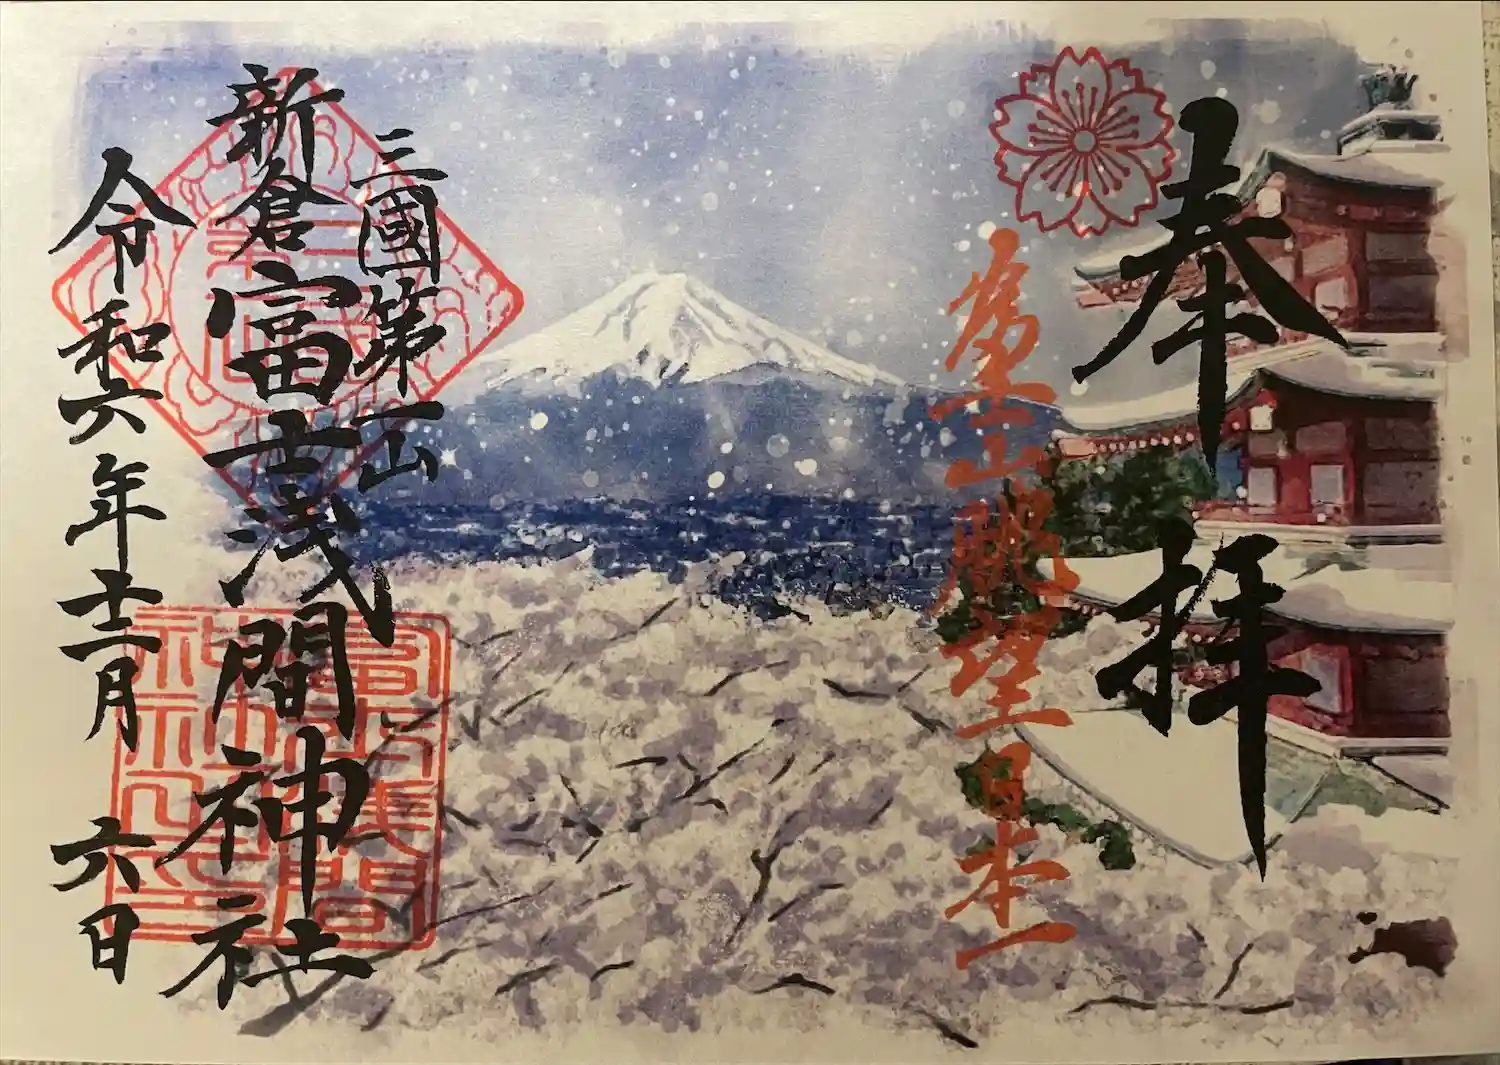 奉拝
山眺望日本一
三國第一山
新倉富士浅間神社
令和六年十二月六日